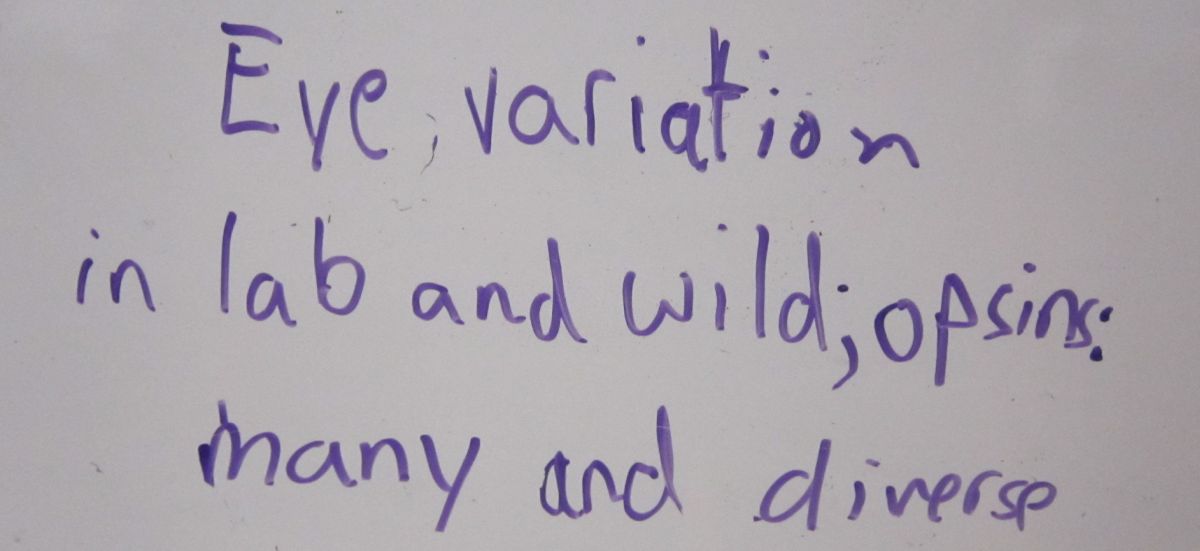 Eye, variation
in lab and wild; opsins:
many and diverse